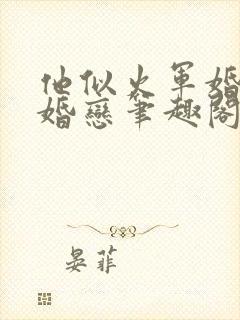 他似火軍婚
婚戀筆趣閣
晏菲